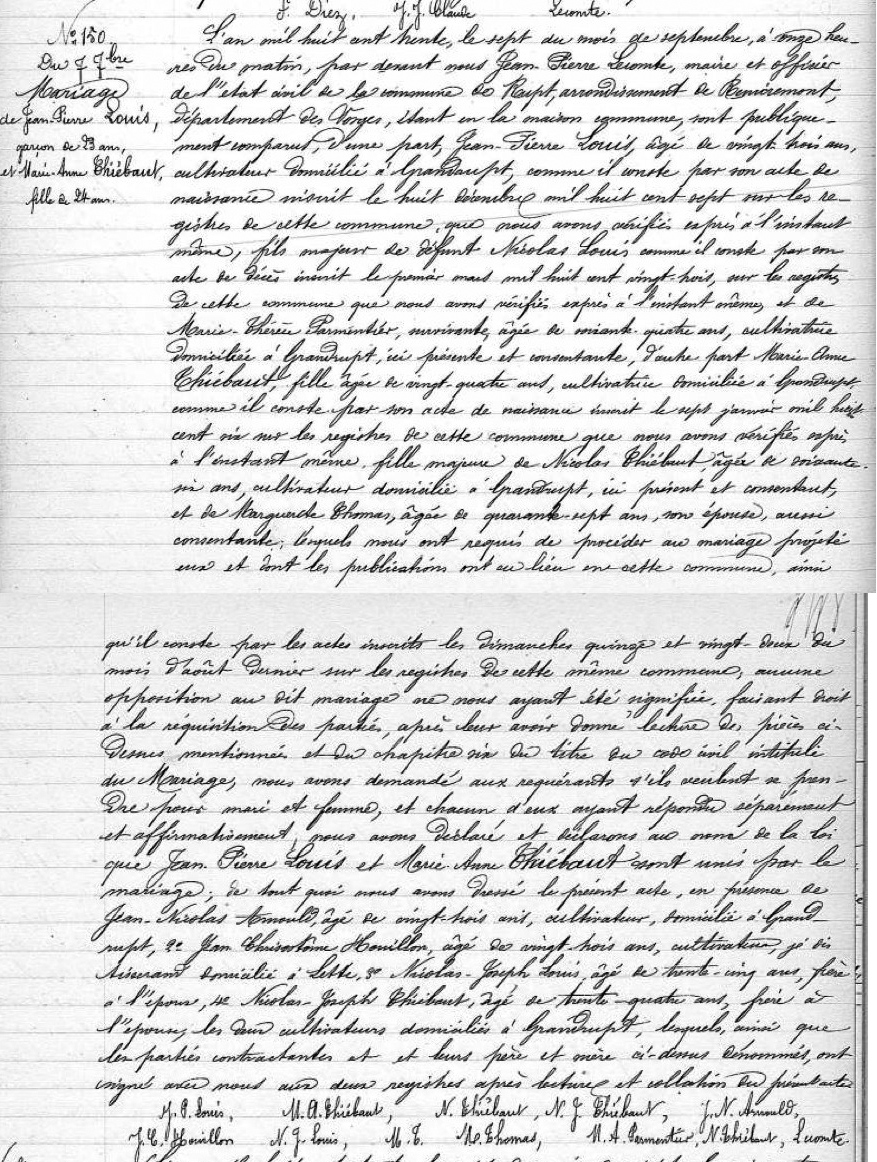 F. Diez, J. J. Claude Lecomte.
N° 150
Du 7 7bre
Mariage
de Jean-Pierre Louis,
garçon de 23 ans,
et Marie-Anne Thiébaut,
fille de 24 ans.
L'an mil huit cent trente, le sept du mois de septembre, à onze heu-
res du matin, par devant nous Jean-Pierre Lecomte, maire et officier
de l'état civil de la commune de Rupt, arrondissement de Remiremont,
département des Vosges, étant en la maison commune, sont publique-
ment comparus, d'une part, Jean-Pierre Louis, âgé de vingt-trois ans,
cultivateur domicilié à Grandrupt, comme il conste par son acte de
naissance inscrit le huit décembre mil huit cent sept sur les re-
gistres de cette commune, que nous avons vérifiés exprès à l'instant
même, fils majeur de défunt Nicolas Louis comme il conste par son
acte de décès inscrit le premier mars mil huit cent vingt-trois, sur les registres
de cette commune que nous avons vérifiés exprès à l'instant même, et de
Marie-Thérèse Parmentier, survivante, âgée de soixante-quatre ans, cultivatrice
domiciliée à Grandrupt, ici présente et consentante, d'autre part Marie-Anne
Thiébaut, fille âgée de vingt-quatre ans, cultivatrice domiciliée à Grandrupt,
comme il conste par son acte de naissance inscrit le sept janvier mil huit
cent six sur les registres de cette commune que nous avons vérifiés exprès
à l'instant même, fille majeure de Nicolas Thiébaut, âgée de soixante-
six ans, cultivateur domicilié à Grandrupt, ici présent et consentant,
et de Marguerite Thomas, âgée de quarante-sept ans, son épouse, aussi
consentante; lesquels nous ont requis de procéder au mariage projeté
eux et dont les publications ont eu lieu en cette commune, ainsi
qu'il conste par les actes inscrits les dimanches quinze et vingt-deux du
mois d'août dernier sur les registres de cette même commune, aucune
opposition au dit mariage ne nous ayant été signifiée, faisant droit
à la réquisition des parties, après leur avoir donné lecture des pièces ci-
dessus mentionnées et du chapitre six du titre du code civil intitulé
du Mariage, nous avons demandé aux requérants s'ils veulent se pren-
dre pour mari et femme, et chacun d'eux ayant répondu séparément
et affirmativement, nous avons déclaré et déclarons au nom de la loi
que Jean-Pierre Louis et Marie-Anne Thiébaut sont unis par le
mariage; de tout quoi nous avons dressé le présent acte, en présence de
Jean-Nicolas Arnould, âgé de vingt-trois ans, cultivateur, domicilié à Grand
rupt, 2° Jean Chrisostôme Houillon, âgé de vingt-trois ans, cultivateur, je dis
tisserand domicilié à Lette, 3° Nicolas-Joseph Louis, âgé de trente-cinq ans, frère
à l'époux, 4e Nicolas-Joseph Thiébaut, âgé de trente-quatre ans, frère à
l'épouse, les deux cultivateurs domiciliés à Grandrupt, lesquels, ainsi que
les parties contractantes et et leurs père et mère ci-dessus dénommés, ont
signé avec nous aux deux registres après lecture et collation du présent acte
J. P. Louis, M. A. Thiébaut, N. Thiébaut, N. J. Thiébaut, J. N. Arnould,
J. C. Houillon N. J. Louis, M. T. M. Thomas, M. A. Parmentier, N. Thiébaut, Lecomte.